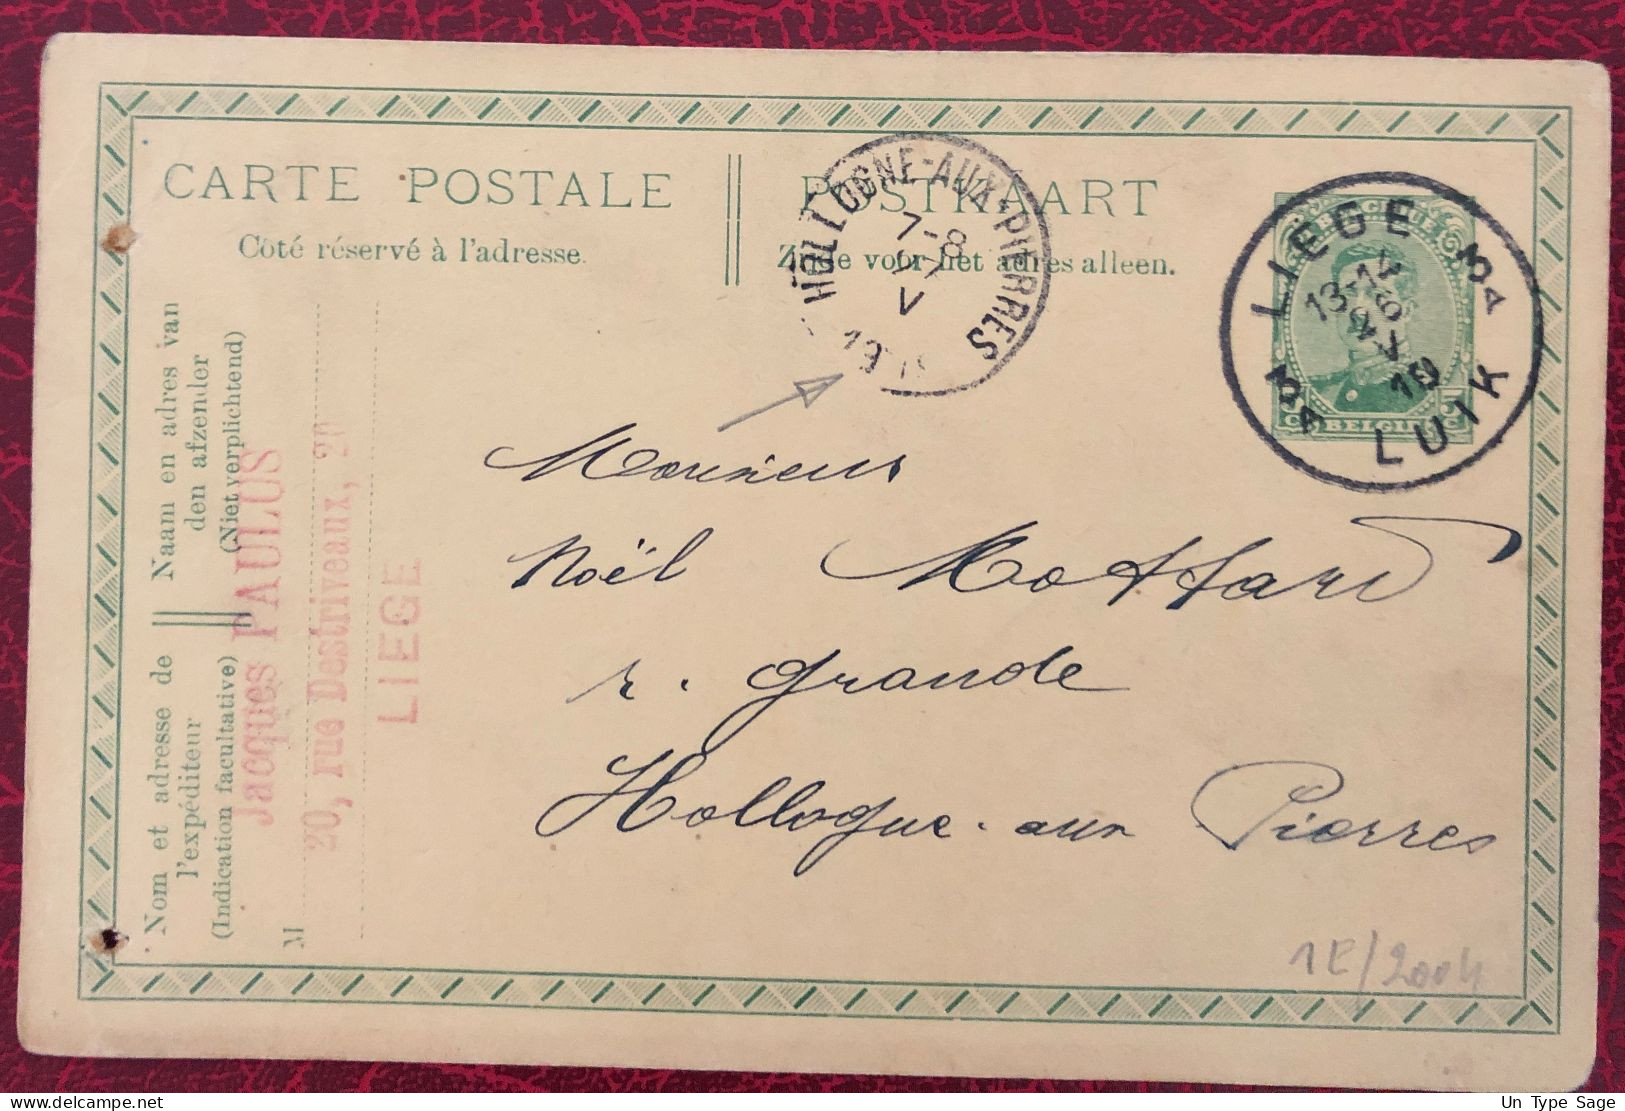 CARTE POSTALE
Côté réservé à l'adresse.
POSTKAART
Zijde voor het adres alleen.
HOLLOGNE-AUX-PIERRES
7-8
V
LIEGE 3A
LUIK 3A
13-14
26
V
19
BELGIQUE
BELGIE
Naam en adres van
den afzender
(Niet verplichtend)
Nom et adresse de
l'expéditeur
(Indication facultative)
M
Jacques PAULUS
20, rue Destriveaux, 20
LIEGE
Monsieur
Noël Mottard
r. Grande
Hollogne-aux Pierres
1E/2004
Un Type Sage